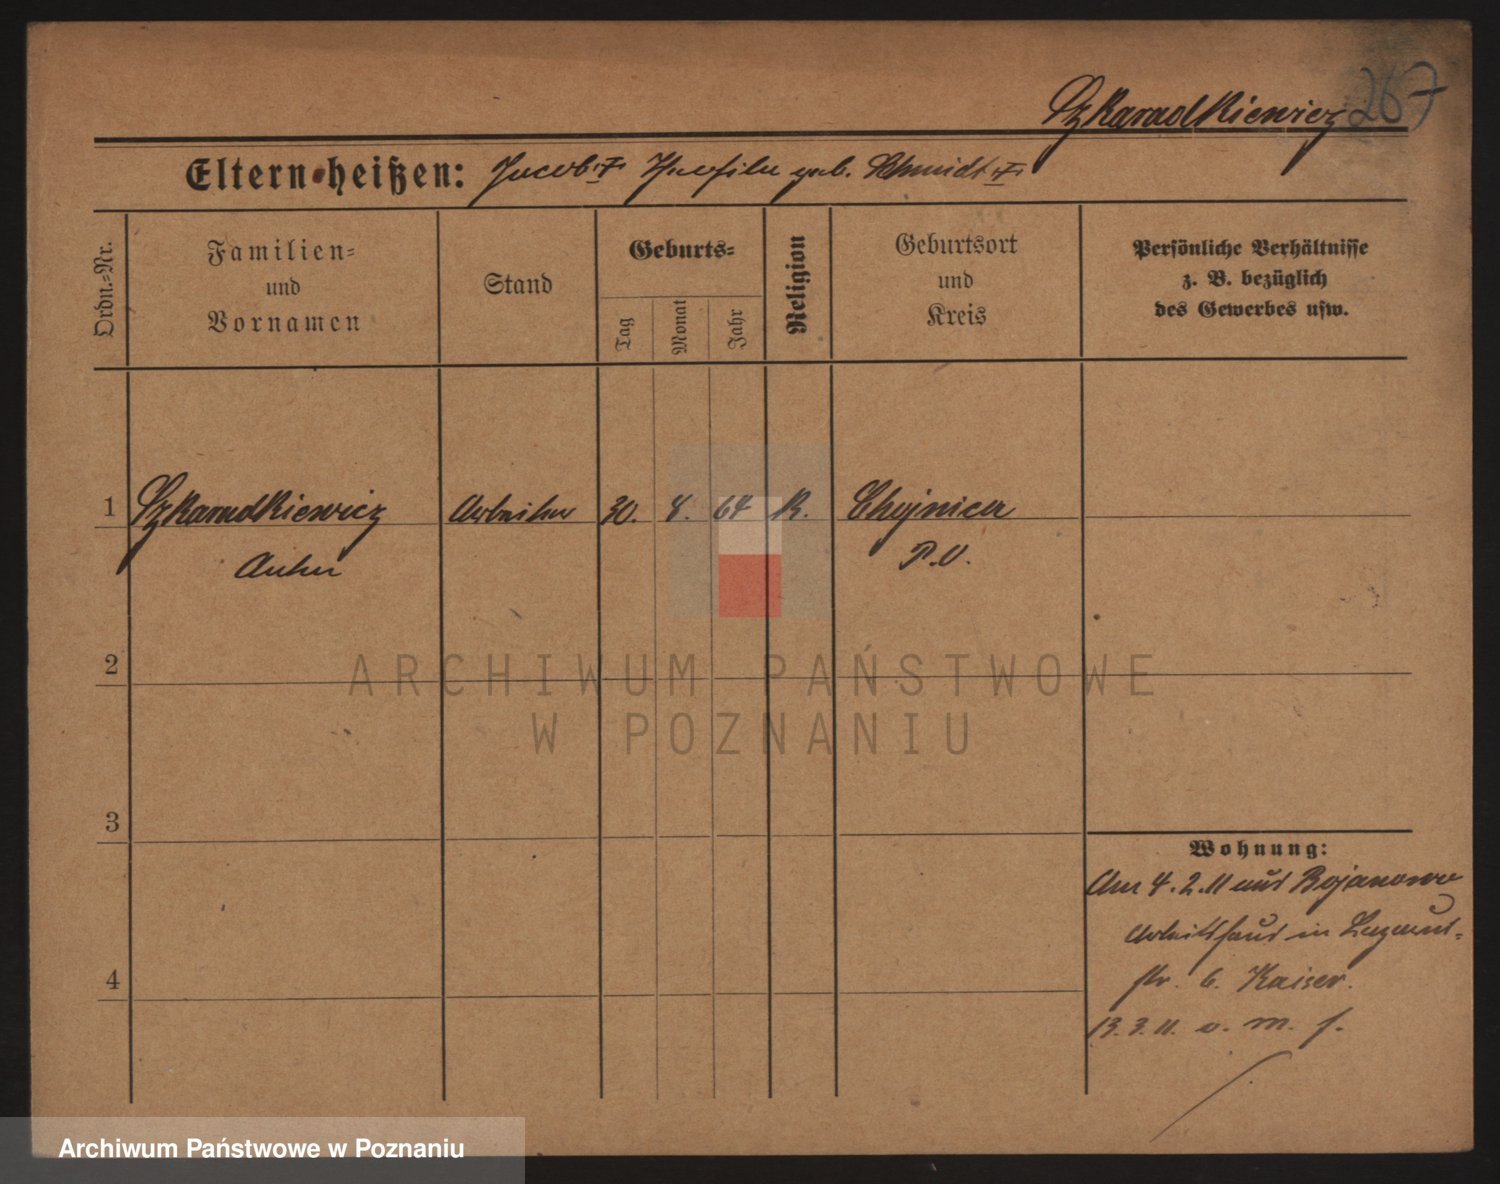 Szkaradkiewicz 267
Eltern heißen: Jacob geb. Schmidt
Ordn.-Nr.
Familien-
und
Vornamen
Stand
Geburts-
Tag
Monat
Jahr
Religion
Geburtsort
und
Kreis
Persönliche Verhältnisse
z. B. bezüglich
des Gewerbes usw.
1 Szkaradkiewicz Arbeiter 30. 8. 64 K. Chojnica
Anton P. O.
2
3
4
Wohnung:
Am 4. 2. 11 aus Bojanowo
Arbeitshaus in
str. 6. Kaiser.
13. 3. 11. o. m. f.
ARCHIWUM PAŃSTWOWE
W POZNANIU
Archiwum Państwowe w Poznaniu